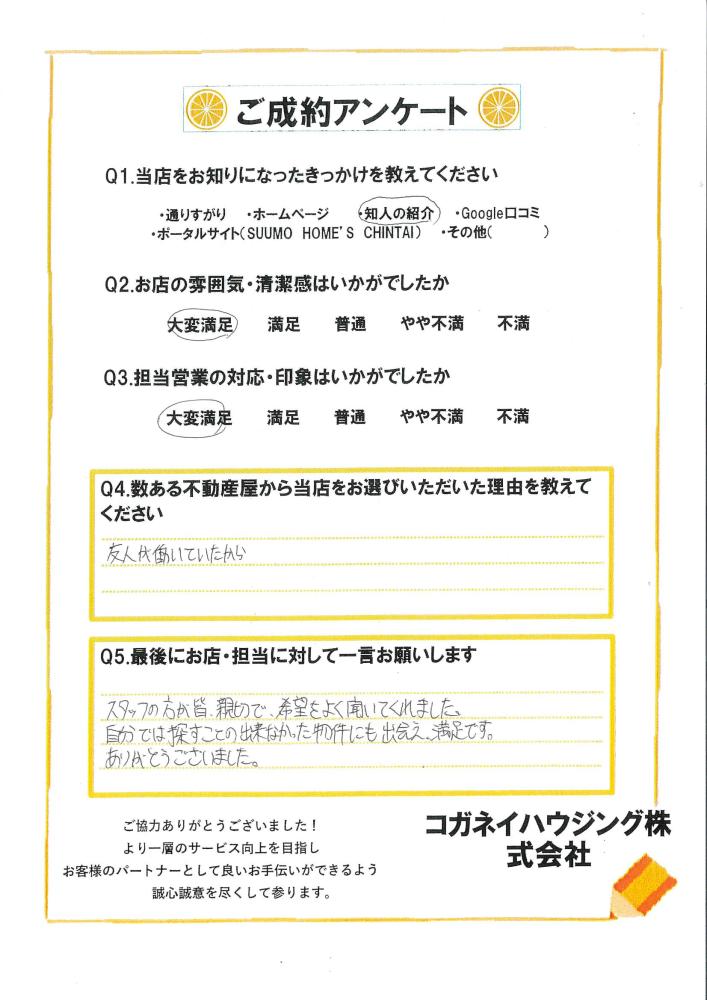 ご成約アンケート
Q1.当店をお知りになったきっかけを教えてください
・通りすがり ・ホームページ ・知人の紹介 ・Google口コミ
・ポータルサイト(SUUMO HOME'S CHINTAI) ・その他( )
Q2.お店の雰囲気・清潔感はいかがでしたか
大変満足 満足 普通 やや不満 不満
Q3.担当営業の対応・印象はいかがでしたか
大変満足 満足 普通 やや不満 不満
Q4.数ある不動産屋から当店をお選びいただいた理由を教えて
ください
友人が働いていたから
Q5.最後にお店・担当に対して一言お願いします
スタッフの方が皆、親切で、希望をよく聞いてくれました。
自分では探すことの出来なかった物件にも出会え、満足です。
ありがとうございました。
ご協力ありがとうございました！
より一層のサービス向上を目指し
お客様のパートナーとして良いお手伝いができるよう
誠心誠意を尽くして参ります。
コガネイハウジング株
式会社